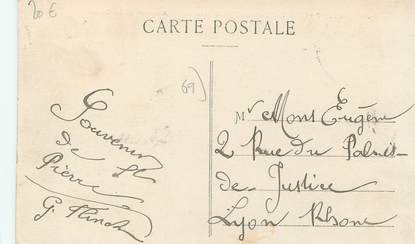 20 €
CARTE POSTALE
69)
Souvenir
de St
Pierre
G.
Mr Mons Eugène
2 Rue du Palais-
de-Justice
Lyon Rhone